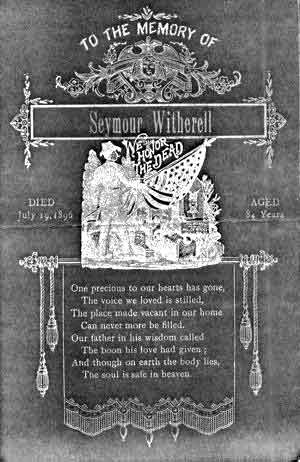 TO THE MEMORY OF
Seymour Witherell
WE
HONOR
THE DEAD
DIED
July 19, 1896
AGED
84 Years
One precious to our hearts has gone,
The voice we loved is stilled,
The place made vacant in our home
Can never more be filled.
Our father in his wisdom called
The boon his love had given;
And though on earth the body lies,
The soul is safe in heaven.